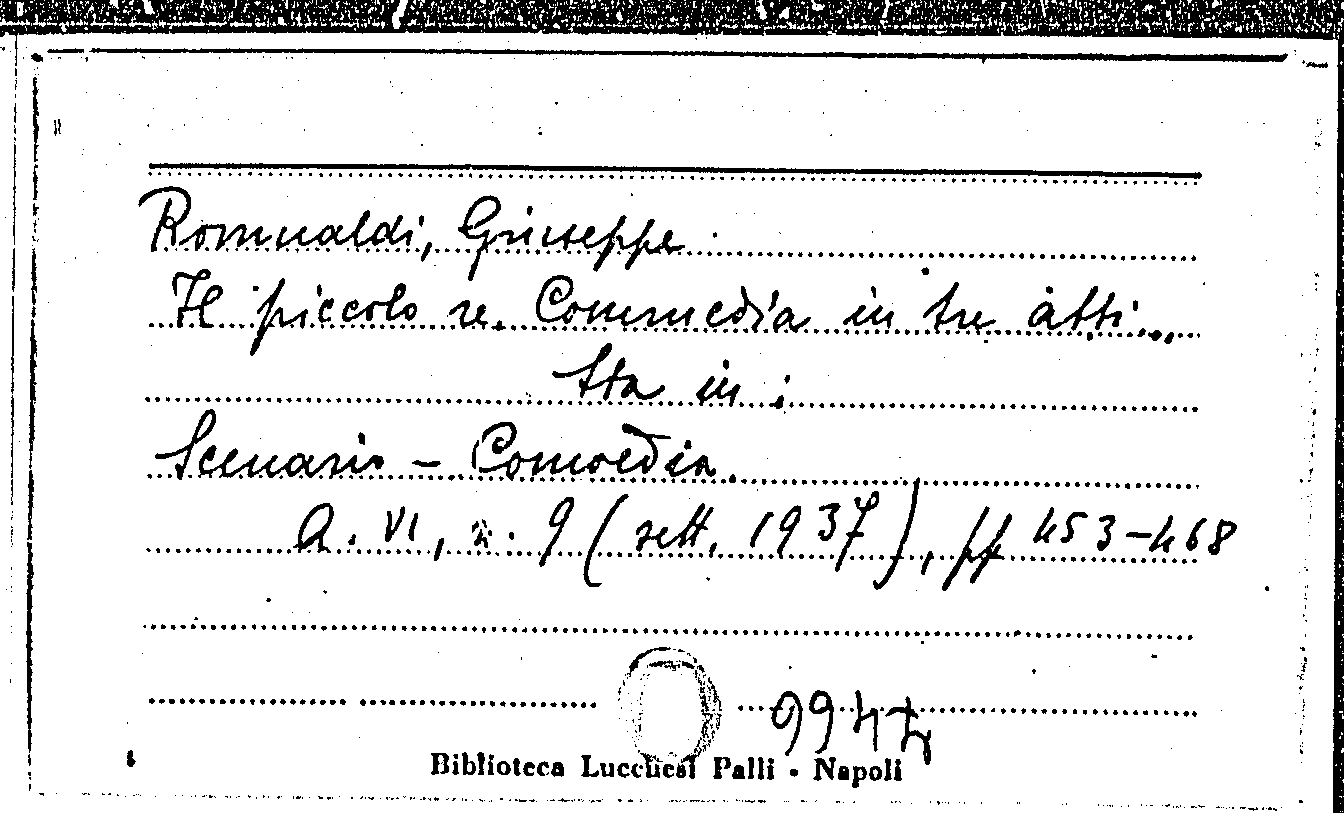 Romualdi, Giuseppe.
Il piccolo re. Commedia in tre atti...
Sta in :
Scenario - Comoedia.
A. VI, n. 9 (sett. 1937), pp 453-468
Biblioteca Lucchesi Palli - Napoli